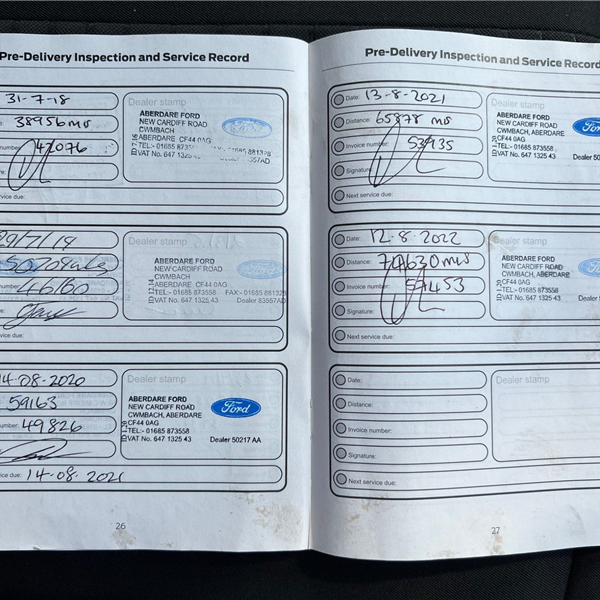 Pre-Delivery Inspection and Service Record
31-7-18
38956mls
42076
Dealer stamp
ABERDARE FORD
NEW CARDIFF ROAD
CWMBACH
ABERDARE CF44 0AG
TEL:- 01685 873558
VAT No. 647 1325 43
29/7/19
50204mls
46160
Dealer stamp
ABERDARE FORD
NEW CARDIFF ROAD
CWMBACH, ABERDARE
CF44 0AG
TEL:- 01685 873558 FAX:- 01685 8813
VAT No. 647 1325 43 Dealer 83557A
Next service due:
14-08-2020
59163
49826
Dealer stamp
ABERDARE FORD
NEW CARDIFF ROAD
CWMBACH, ABERDARE
CF44 0AG
TEL:- 01685 873558
VAT No. 647 1325 43 Dealer 50217 AA
Ford
14-08-2021
26
Pre-Delivery Inspection and Service Record
Date: 13-8-2021
Distance: 65878 mls
Invoice number: 53935
Signature:
Next service due:
Dealer stamp
ABERDARE FORD
NEW CARDIFF ROAD
CWMBACH, ABERDARE
CF44 0AG
TEL:- 01685 873558
VAT No. 647 1325 43 Dealer 50
Date: 12-8-2022
Distance: 74630 mls
Invoice number: 57453
Signature:
Next service due:
Dealer stamp
ABERDARE FORD
NEW CARDIFF ROAD
CWMBACH, ABERDARE
CF44 0AG
TEL:- 01685 873558
VAT No. 647 1325 43 Dealer 5
Date:
Distance:
Invoice number:
Signature:
Next service due:
Dealer stamp
27